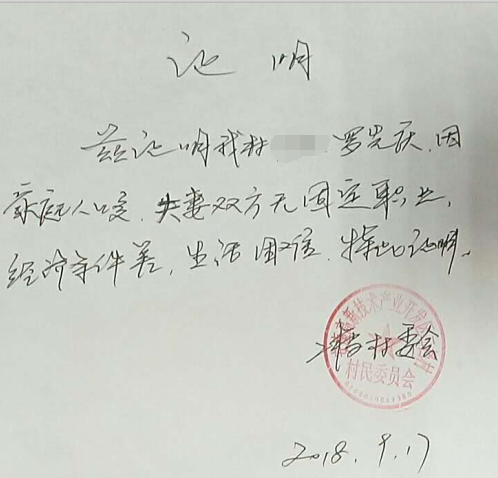 证明
兹证明我村 罗光庆,因
家庭人口多,夫妻双方无固定职业,
经济条件差,生活困难,特此证明。
村委会
新技术产业开发
村民委员会
2018.9.17